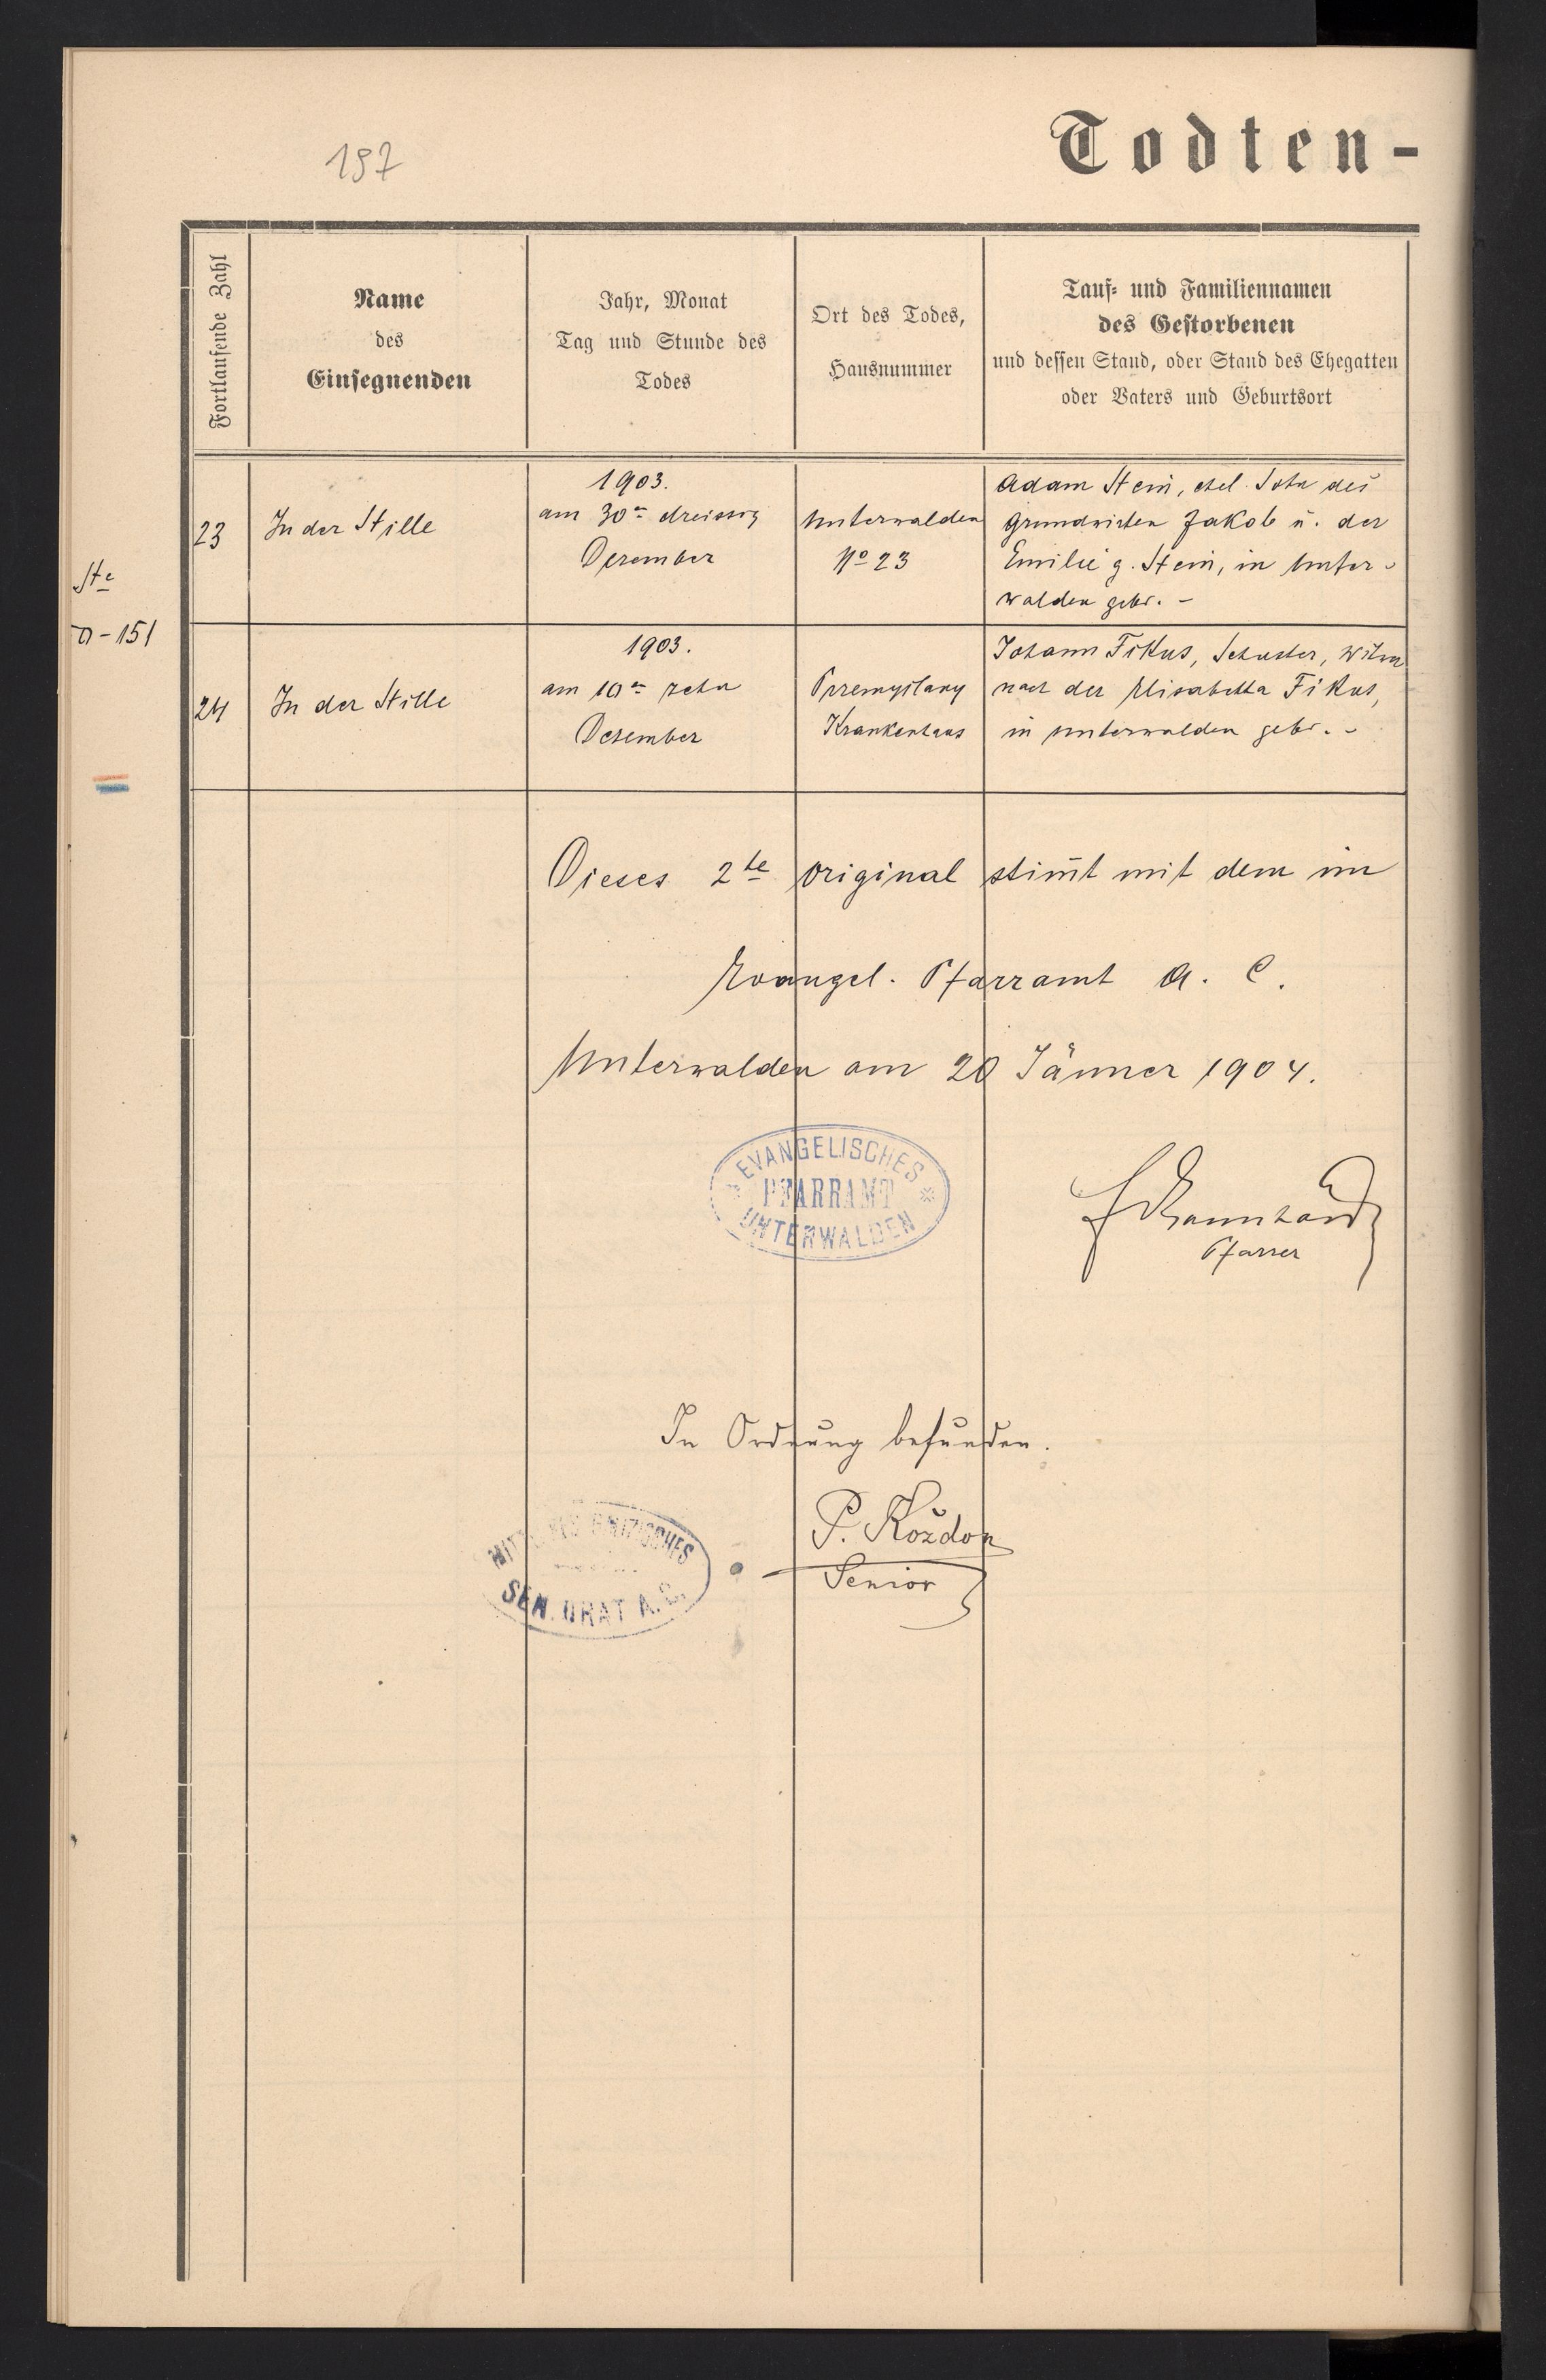 Todten-
197
Fortlaufende Zahl
Name
des
Einsegnenden
Jahr, Monat
Tag und Stunde des
Todes
Ort des Todes,
Hausnummer
Tauf- und Familiennamen
des Gestorbenen
und dessen Stand, oder Stand des Ehegatten
oder Vaters und Geburtsort
23
In der Stille
1903.
am 30ⁿ dreissig
Dezember
Unterwalden
Nº 23
Adam Stein, ehel. Sohn des
Grundwirten Jakob u. der
Emilie g. Stein, in Unter-
walden gebr. -
Ste
a-151
24
In der Stille
1903.
am 10ⁿ zehn
Dezember
Przemyslany
Krankenhaus
Johann Fikus, Schuster, Witwer
nach der Elisabetha Fikus,
in Unterwalden gebr. -
Dieses 2te Original stim̄t mit dem im
Evangel. Pfarramt A. C.
Unterwalden am 20 Jänner 1904.
EVANGELISCHES
PFARRAMT
UNTERWALDEN
Pfarrer
In Ordnung befunden.
P. Kozdon
Senior
SENIORAT A. C.